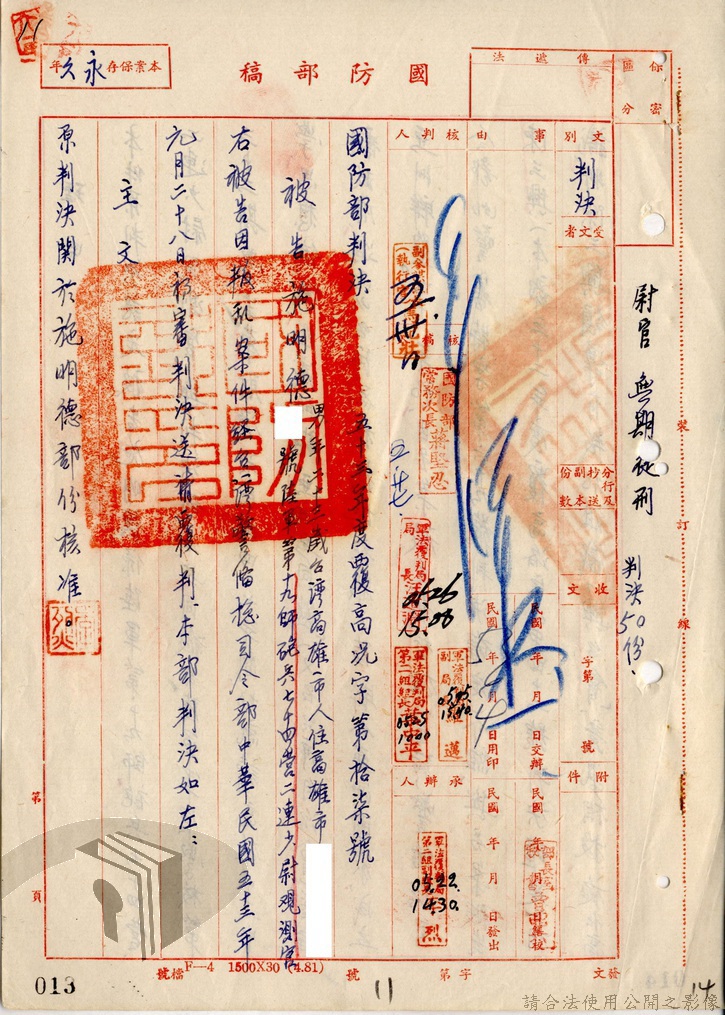 國防部稿
本案保存
永久
年
傳遞法
保密
區分
文別
判決
受文者
事由
核判人
核稿
分行及抄送
副本份數
收文
字第
號
附件
民國
年
月
日交辦
民國
年
月
日用印
民國
年
月
日發出
承辦人
裝訂線
尉官 無期徒刑 判決50份
國防部
常務次長蔣堅忍
軍法覆判局
局長汪
軍法覆判局
副局長
軍法覆判局
第二組組長
0525
1000
0525
1540
0526
1508
0522
1430
國防部判決 五十三年度覆高況字第拾柒號
被告施明德 男年二十三歲台灣高雄市人住高雄市
號陸軍第十九師砲兵七十四營二連少尉觀測官
右被告因叛亂案件經台灣警備總司令部中華民國五十三年
元月二十八日初審判決送請覆判,本部判決如左:
主文
原判決關於施明德部份核准。
第
頁
013
F—4 1500X30 (4.81)
檔號
11
號
第
字
發文
14
請合法使用公開之影像